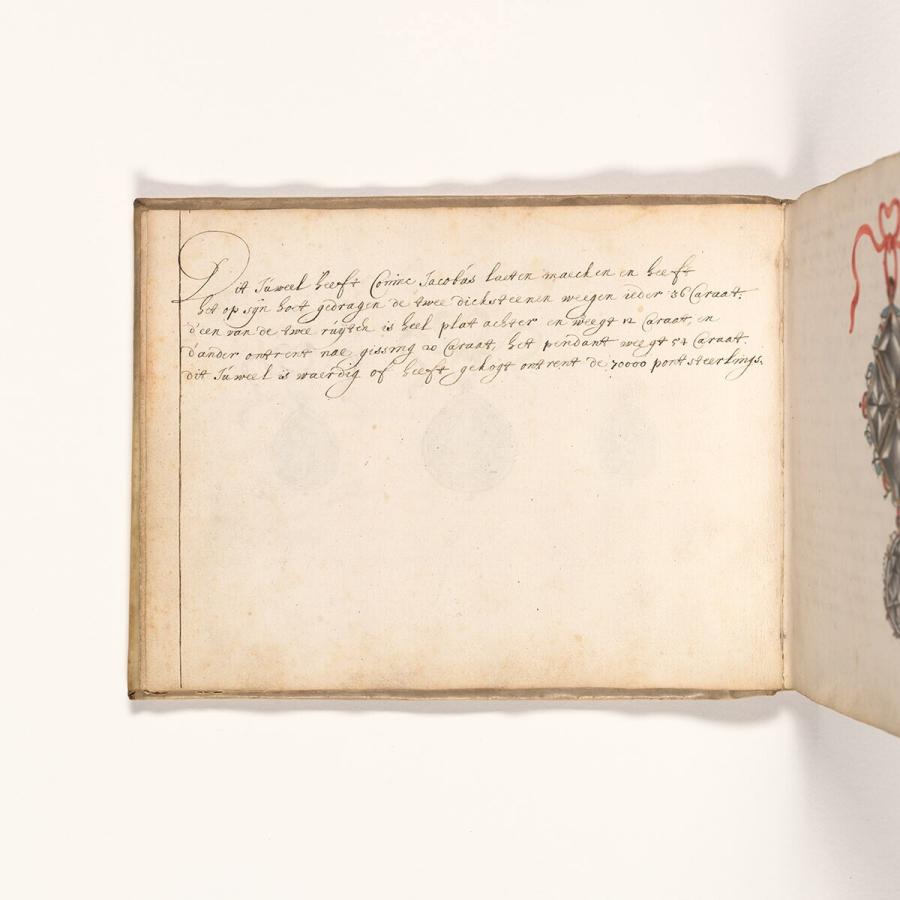 Dit Júweel heeft Coninc Jacobús laeten maecken en heeft
het op sÿn hoet gedragen de twee dicksteenen weegen ieder 36 Caraat.
d'een van de twee rúÿten is heel plat achter en weegt 12 Caraat, en
d'ander ontrent nae gissing 20 Caraat, het pendant weegt 54 Caraat.
dit Júweel is waerdig of heeft gekogt ontrent de 70000 pont steerlings.